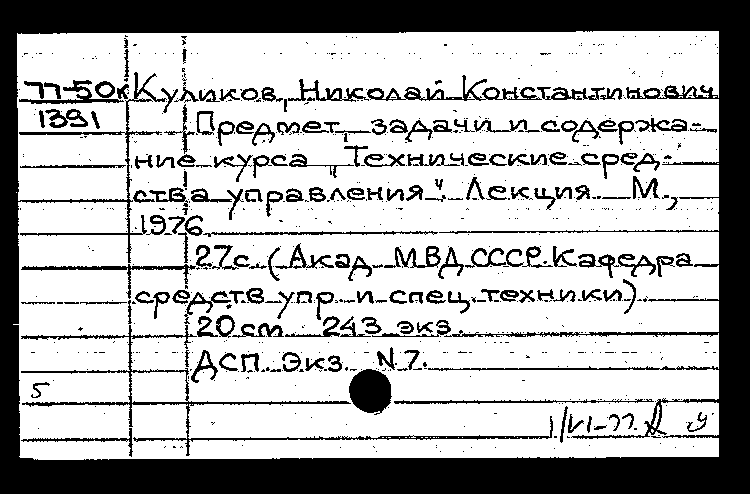 77-50к Куликов, Николай Константинович
1391 Предмет, задачи и содержа-
ние курса „Технические сред-
ства управления". Лекция. М.,
1976.
27с. (Акад МВД СССР. Кафедра
средств упр. и спец. техники)
20см 243 экз.
ДСП. Экз. N7.
5
1/VI-77.